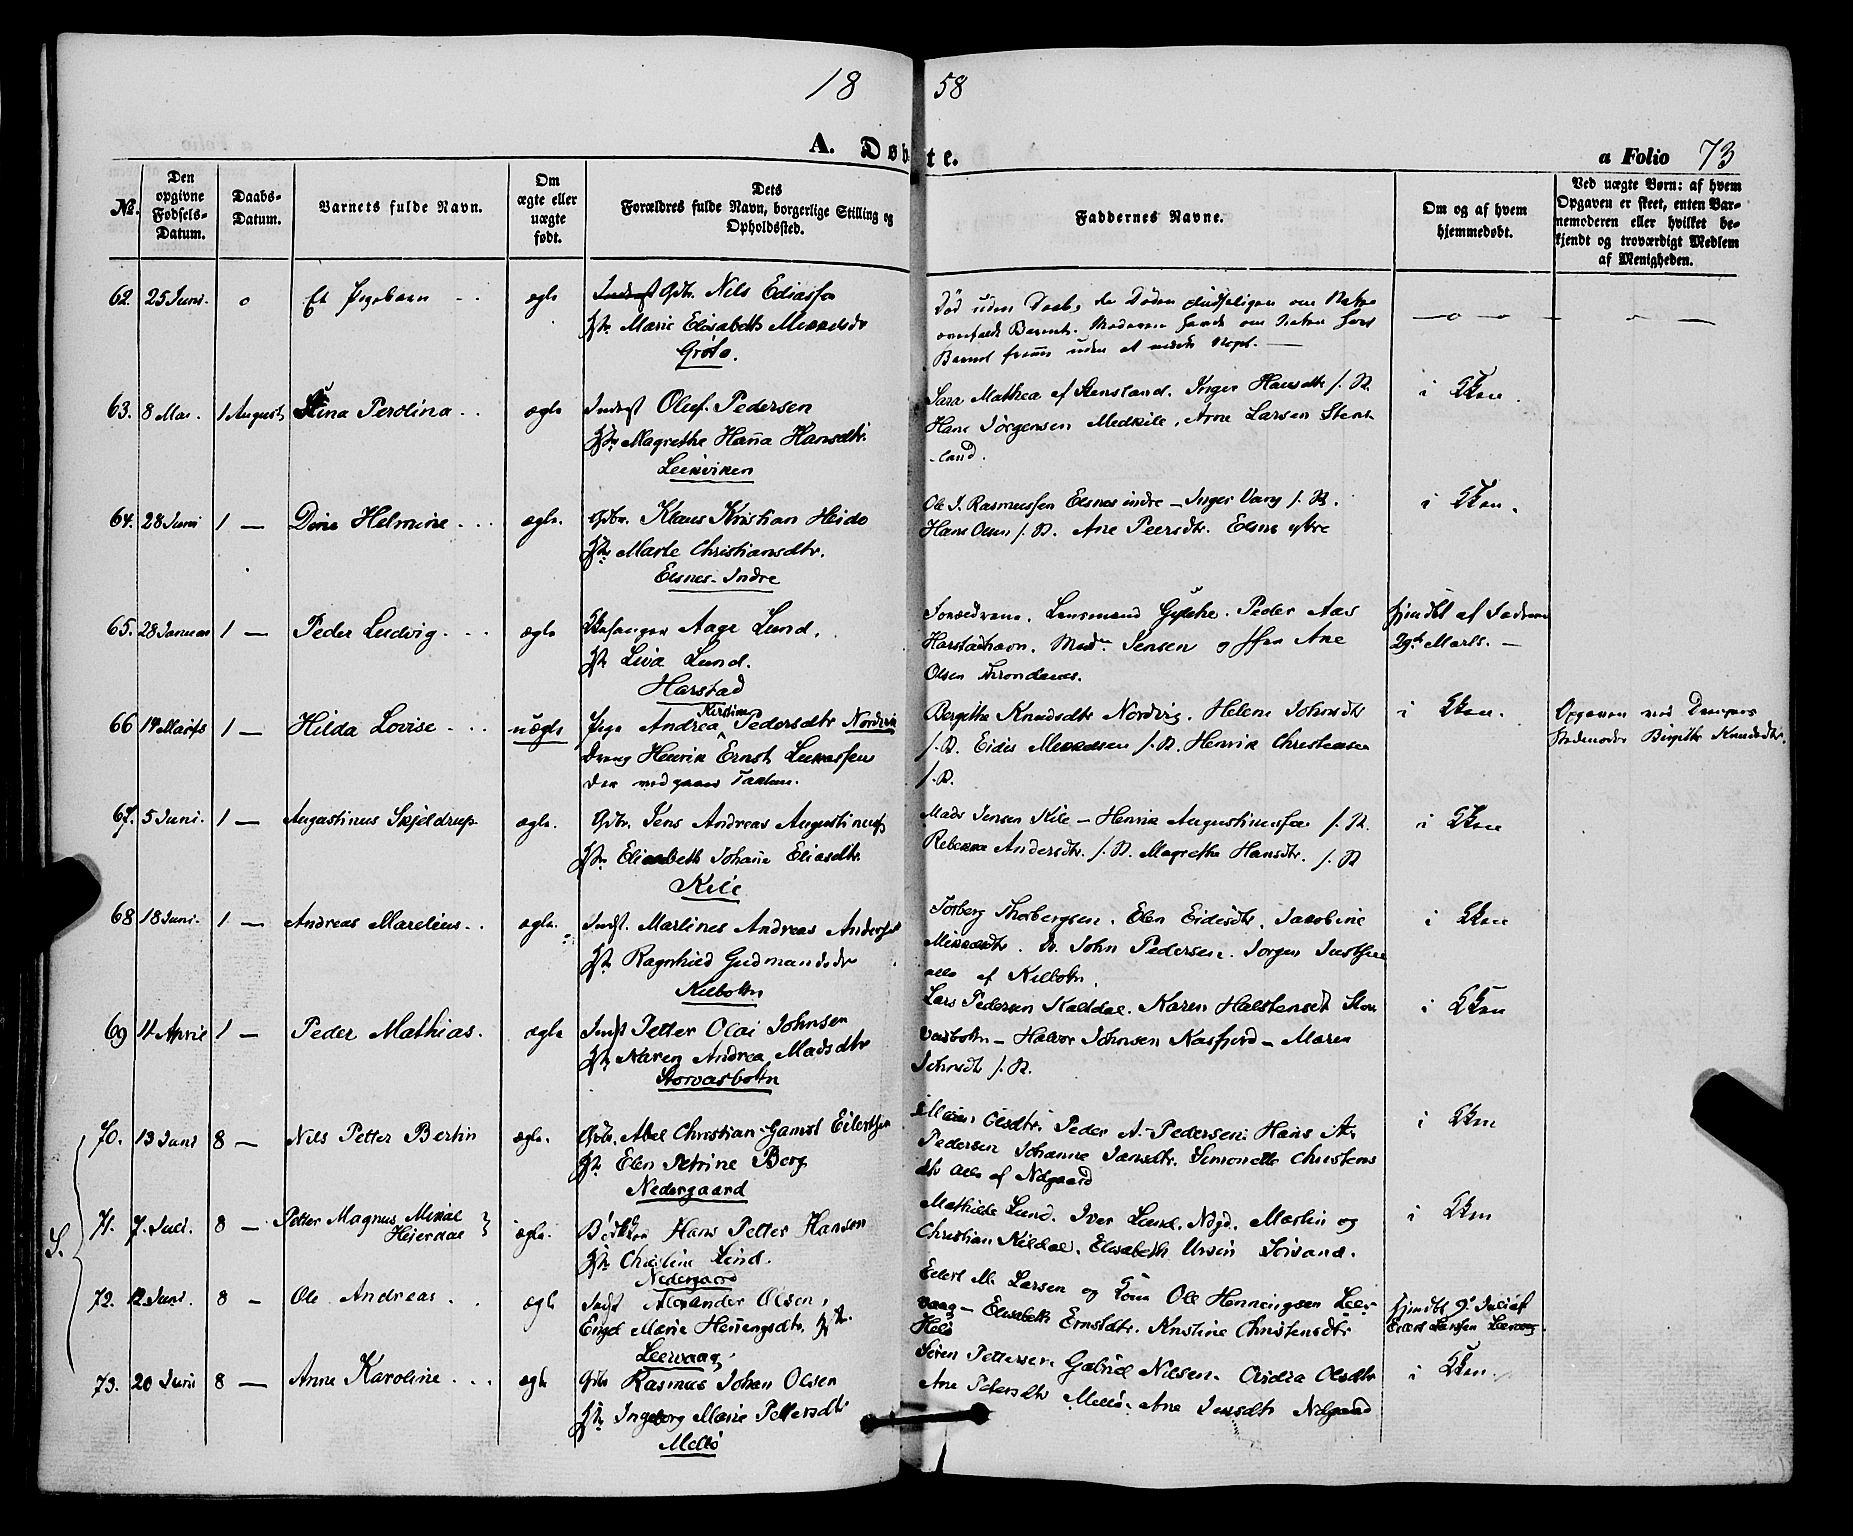 1858
A. Døbte.
a Folio 73
No.
Den opgivne Fødsels-Datum.
Daabs-Datum.
Varnets fulde Navn.
Om ægte eller uægte født.
Dets Forældres fulde Navn, borgerlige Stilling og Opholdssted.
Faddernes Navne.
Om og af hvem hjemmedøbt.
Ved uægte Børn: af hvem Opgaven er skeet, enten Barnemoderen eller hvilket bekjendt og troværdigt Medlem af Menigheden.
62. 25 Juni. o Et Pigebarn ægte Gbr. Nils Eliassen
Marie Elisabeth
Grøtø.
Død uden Daab, da Døden pludseligen om Natten
Barnet. Moderen havde om Natten
Barnet frem uden at
63. 8 Mai. 1 August Stina Perolina ægte Indst Oluf Pedersen
Magrethe Hanna Hansdtr.
Leikviken
Sara Mathea af Stensland. Inger Hansdtr
Hans Jørgensen Medkile, Arne Larsen Stens-
land.
i Kken.
64. 28 Juni 1 — Dina Helmine ægte. Gbr. Klaus Kristian Heide
Marte Christiansdtr.
Elsnes-Indre
Ole J. Rasmussen Elsnes indre — Inger Vang
Hans Olsen Ane Peersdtr. Elsnes ytre
i Kken.
65. 28 Januar 1 — Peder Ludvig ægte Kksanger Aage Lund,
Lund.
Harstad
Lensmand Peder Aas
Harstadhavn. Mad. Jensen og Ane
Olsen Throndenæs.
hjmdbt af Faderen
29de Marts. —
66 14 Marts 1 — Hilda Lovise uægte Pige Andrea Kirstine Pedersdtr Nordvik
Dreng Henrik Ernst Lukassen
Bergithe Knudsdtr Nordvig. Helene Johnsdtr
Eidis Henrik Christensen
i Kken.
Opgaven ved Drengens
Stedmoder Birgitte Knudsdtr.
67. 5 Juni. 1 — Augustinus Skjeldrup ægte. Gbr. Jens Andreas Augustinusn
Elisabeth Johanne Eliasdtr
Kile
Mads Jensen Kile — Henrik Augustinussen
Rebekka Andersdtr. Magrethe Hansdtr.
i Kken
68 18 Juni. 1 — Andreas Marelius ægte. Indst. Martines Andreas Andersen
Ragnhild Gudmandsdtr
Kilbotn
Torberg Thorbergsen. Elen Eidisdtr. Jacobine
John Pedersen. Jørgen Justsen
alle af Kilbotn.
i Kken
69 4 April 1 — Peder Mathias. ægte Indst Petter Olai Johnsen
Karen Andrea Madsdtr
Storvasbotn
Lars Pedersen Kaldal. Karen Halstensdt Stor
vasbotn — Halvor Johnsen Kasfjord — Maren
Johnsdtr
i Kken
70. 13 Juni 8 — Nils Petter Bertin ægte. Gbr. Abel Christian Gamst Eilertsen
Elen Petrine Berg
Nedergaard
Olsdtr. Peder A. Pedersen. Hans A.
Pedersen Johanne Simonette Christens
dtr alle af Ndgaard
i Kken
S.
71. 7 Juli. 8 — Petter Magnus Mikal
Heierdal
ægte. Hans Petter Hansen
Christine Lind.
Nedergaard
Mathilde Lund. Iver Lund. Ndgd. Martin og
Christian Kildal. Elisabeth Ursin Sørsand.
i Kken
72. 12 Juni. 8 — Ole Andreas ægte Indst Alexander Olsen,
Engel Marie Henningsdtr.
Leervaag
Eilert M. Larsen og Ole Henningsen Leer-
vaag — Elisabeth Ernstdtr. Kristine Christensdtr
hjmdbt 9. Juli af
Eilert Larsen Leervaag
73. 20 Juni 8 — Anne Karoline ægte Gbr Rasmus Johan Olsen
Ingeborg Marie Pettersdtr
Melø
Søren Pettersen. Gabriel Nilsen. Olsdtr
Ane Petersdtr Melø. Ane Jensdtr Ndgaard
i Kken.